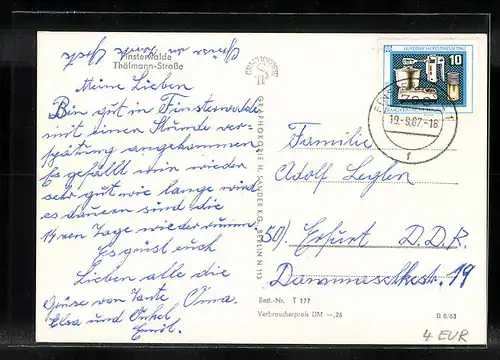 Grüsse an Tante Gerda
Finsterwalde
Thälmann-Straße
Meine Lieben
Bin gut in Finsterwalde
mit einen Stunde ver-
spätung angekommen
Es gefällt mir wieder
sehr gut wie lange wird
es dauern sind die
14 Tage wieder rum.
Es grüst euch
Lieben alle die
Grüse von Tante Oma,
Elsa und Onkel
Emil.
GRAPHOKOPIE H. SANDER KG, BERLIN N 113
LEIPZIGER HERBSTMESSE 1967
10
DDR
19.-9.67.-18
f
Familie
Adolf Leglen
50) Erfurt D.D.R.
19
Best.-Nr. T 177
Verbraucherpreis DM -,25
B 8/63
4 EUR